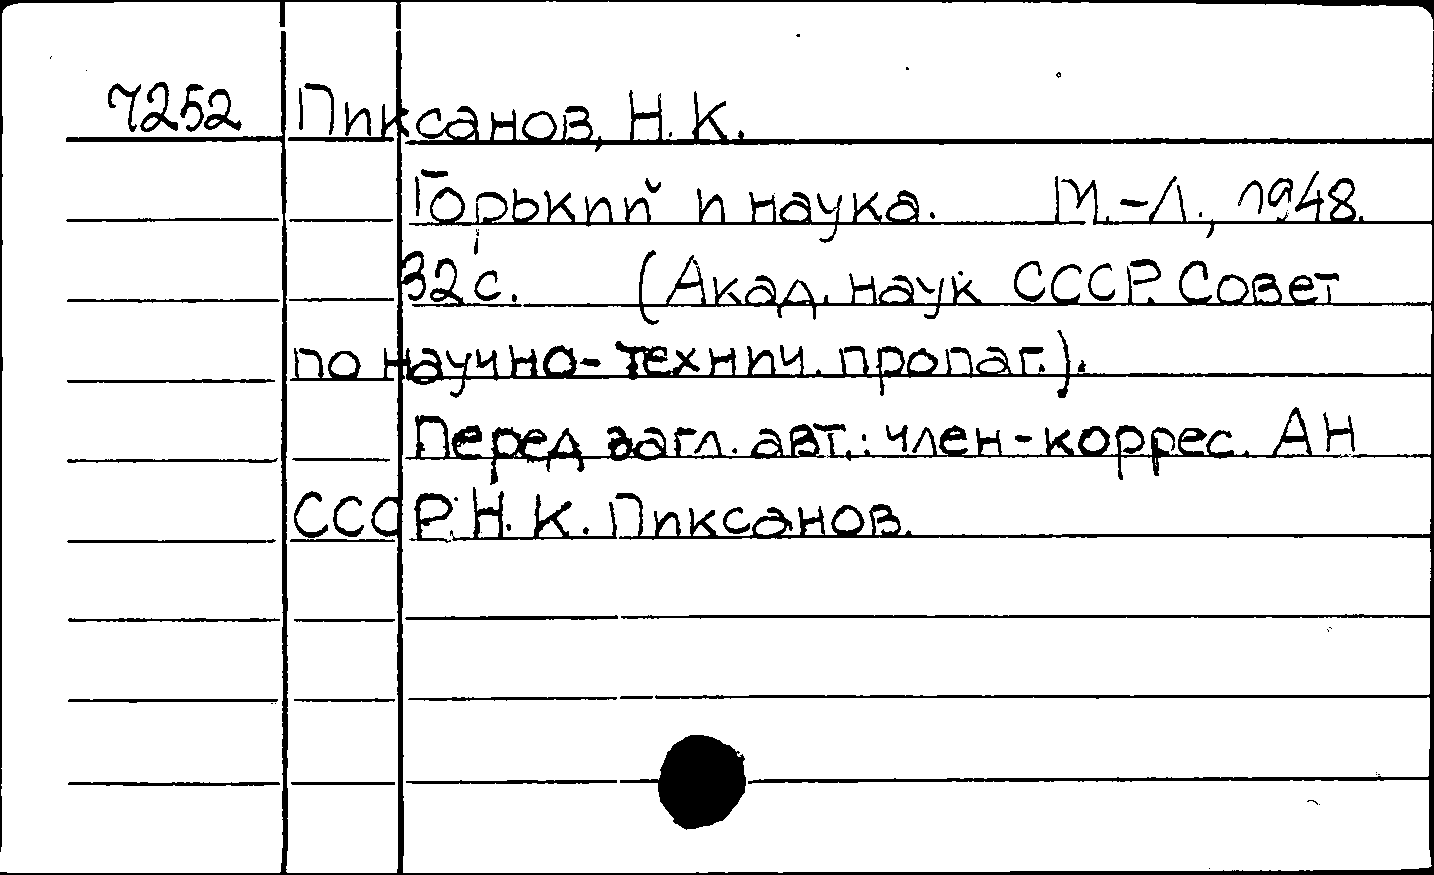 7252 Пиксанов, Н. К.
Горький и наука. М.-Л., 1948.
32 с. (Акад. наук СССР. Совет
по научно-технич. пропаг.).
Перед загл. авт.: член-коррес. АН
СССР Н. К. Пиксанов.